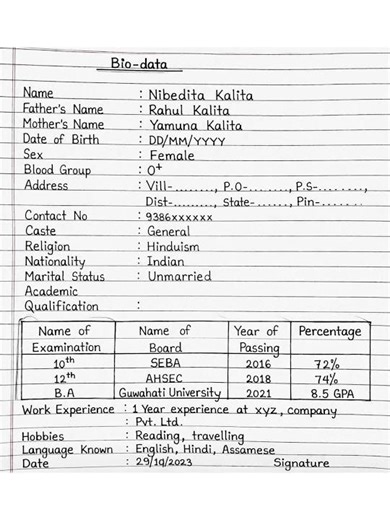 Bio-data
Name : Nibedita Kalita
Father's Name : Rahul Kalita
Mother's Name : Yamuna Kalita
Date of Birth : DD/MM/YYYY
Sex : Female
Blood Group : O+
Address : Vill-........, P.O-......., P.S-........,
Dist-........., State-......, Pin-.....
Contact No : 9386xxxxxx
Caste : General
Religion : Hinduism
Nationality : Indian
Marital Status : Unmarried
Academic
Qualification :
Name of Name of Year of Percentage
Examination Board Passing
10th SEBA 2016 72%
12th AHSEC 2018 74%
B.A Guwahati University 2021 8.5 GPA
Work Experience : 1 Year experience at xyz, company
: Pvt. Ltd.
Hobbies : Reading, travelling
Language Known : English, Hindi, Assamese
Date : 29/19/2023 Signature